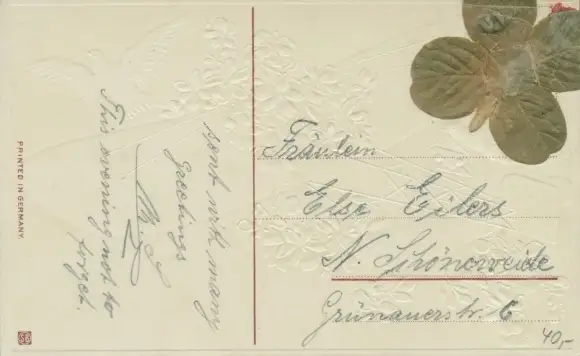 sent with many
greetings
M. S
This evening not to
forget.
PRINTED IN GERMANY.
Fräulein
Else Eilers
N. Schöneweide
Grünauerstr. 6
40,-